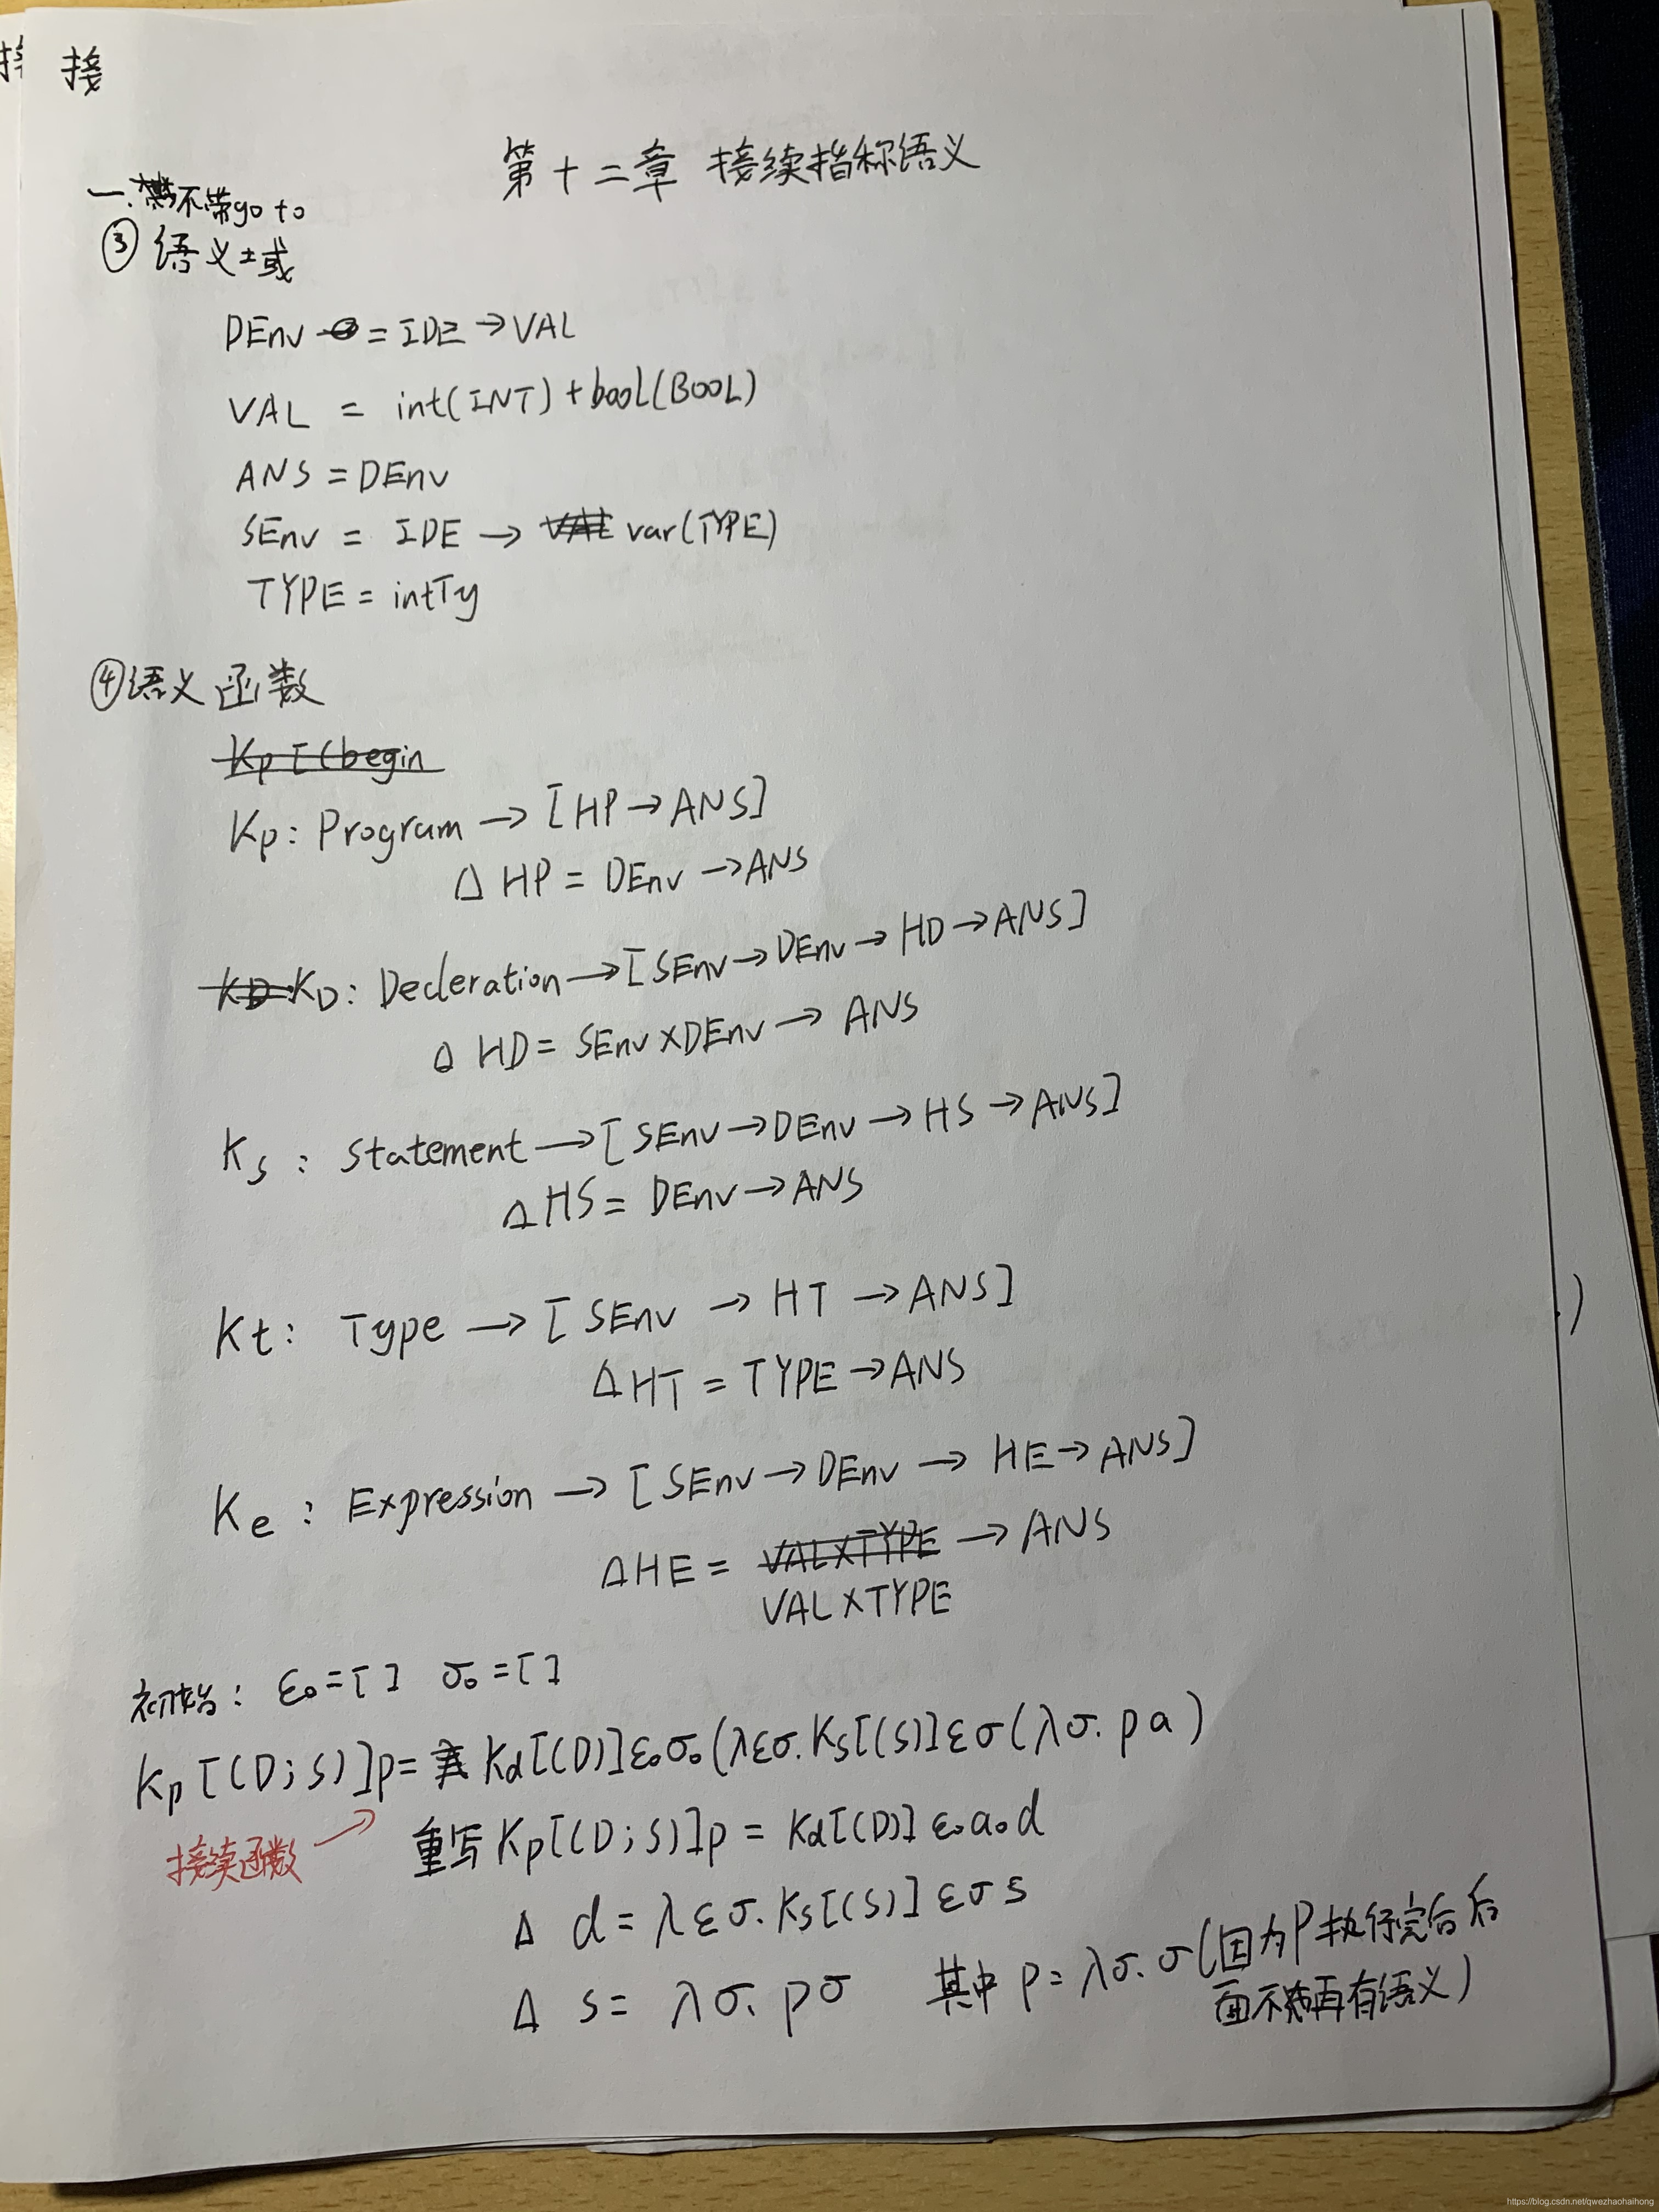 接
第十二章 接续指称语义
一. 不带goto
③ 语义域
DEnv = IDE → VAL
VAL = int(INT) + bool(BOOL)
ANS = DEnv
SEnv = IDE → var(TYPE)
TYPE = intTy
④ 语义函数
Kp [(begin
Kp: Program → [HP → ANS]
Δ HP = DEnv → ANS
KD: Decleration → [SEnv → DEnv → HD → ANS]
Δ HD = SEnv × DEnv → ANS
Ks : Statement → [SEnv → DEnv → HS → ANS]
Δ HS = DEnv → ANS
Kt : Type → [SEnv → HT → ANS]
Δ HT = TYPE → ANS
Ke : Expression → [SEnv → DEnv → HE → ANS]
Δ HE = VAL×TYPE → ANS
VAL×TYPE
初始: ε₀ = [ ] σ₀ = [ ]
Kp [(D;S)]p = Kd[(D)]ε₀σ₀(λεσ.Ks[(S)]εσ(λσ.pa)
接续函数
重写 Kp[(D;S)]p = Kd[(D)] ε₀a₀d
Δ d = λεσ.Ks[(S)] εσs
Δ s = λσ. pσ 其中 p = λσ.σ(因为P执行完后后
面不再有语义)
https://blog.csdn.net/qwezhaohaihong